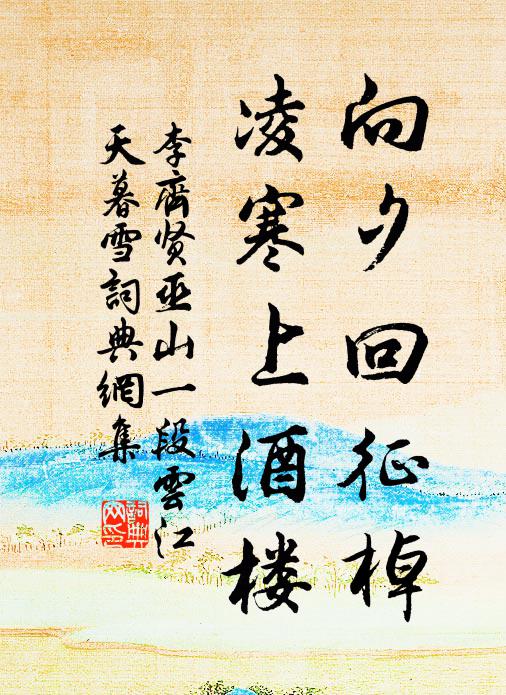 向夕回征棹
凌寒上酒楼
李齊贤巫山一段雲江
天暮雪詞典網集
詞典网印